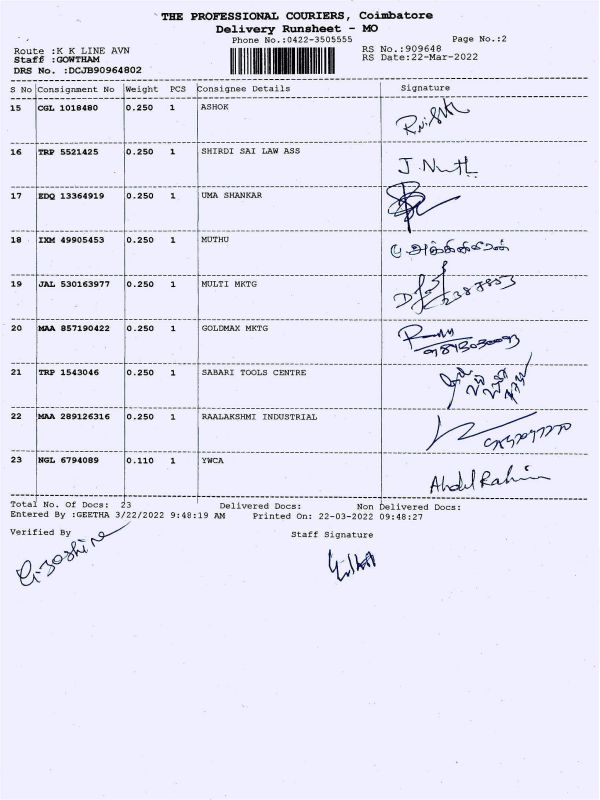 THE PROFESSIONAL COURIERS, Coimbatore
Delivery Runsheet - MO
Phone No.:0422-3505555 Page No.:2
Route :K K LINE AVN RS No.:909648
Staff :GOWTHAM RS Date:22-Mar-2022
DRS No. :DCJB90964802
S No Consignment No Weight PCS Consignee Details Signature
15 CGL 1018480 0.250 1 ASHOK
16 TRP 5521425 0.250 1 SHIRDI SAI LAW ASS
17 EDQ 13364919 0.250 1 UMA SHANKAR
18 IXM 49905453 0.250 1 MUTHU
19 JAL 530163977 0.250 1 MULTI MKTG
20 MAA 857190422 0.250 1 GOLDMAX MKTG
21 TRP 1543046 0.250 1 SABARI TOOLS CENTRE
22 MAA 289126316 0.250 1 RAALAKSHMI INDUSTRIAL
23 NGL 6794089 0.110 1 YWCA
Abdul Rahim
Total No. Of Docs: 23 Delivered Docs: Non Delivered Docs:
Entered By :GEETHA 3/22/2022 9:48:19 AM Printed On: 22-03-2022 09:48:27
Verified By Staff Signature